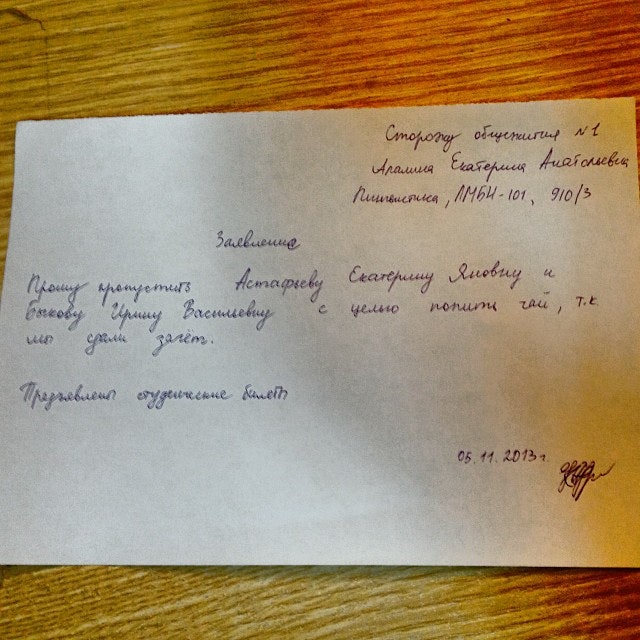 Сторожу общежития №1
Аралина Екатерина Анатольевна
Лингвистика, ЛМБИ-101, 910/3
Заявление
Прошу пропустить Астафьеву Екатерину Яновну и
Быкову Ирину Васильевну с целью попить чай, т.к
мы сдали зачёт.
Предъявлены студенческие билеты
05.11.2013 г.